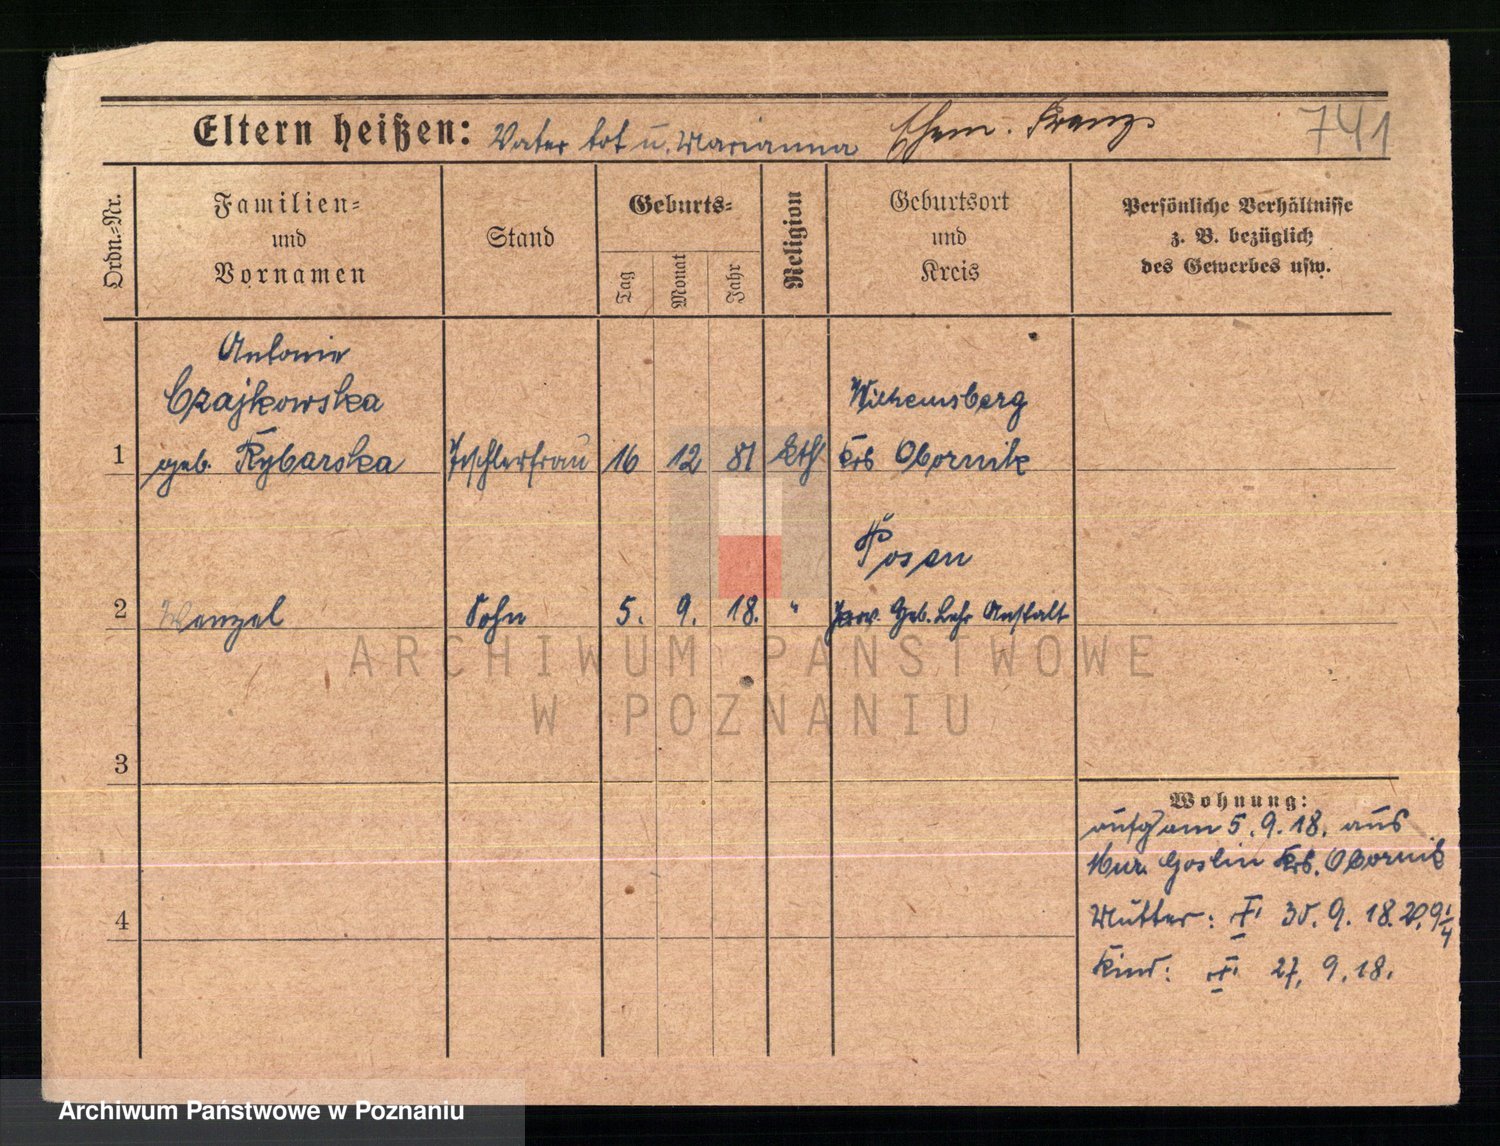 Eltern heißen: Vater tot u. Marianna Ehem. Franz
741
Ordn.-Nr.
Familien-
und
Vornamen
Stand
Geburts-
Tag
Monat
Jahr
Religion
Geburtsort
und
Kreis
Persönliche Verhältnisse
z. B. bezüglich
des Gewerbes usw.
Antonie
Czajkowska
Wilhemsberg
1 geb. Rybarska Tischlerfrau 16 12 81 kth Krs Obornik
Posen
2 Wenzel Sohn 5. 9. 18. " Prov. Geb. Lehr Anstalt
3
Wohnung:
aufg am 5. 9. 18. aus
Mur. Goslin Krs. Obornik
4
Mutter: 30. 9. 18. 9 1/4
Kind: 27. 9. 18.
ARCHIWUM PAŃSTWOWE
W POZNANIU
Archiwum Państwowe w Poznaniu